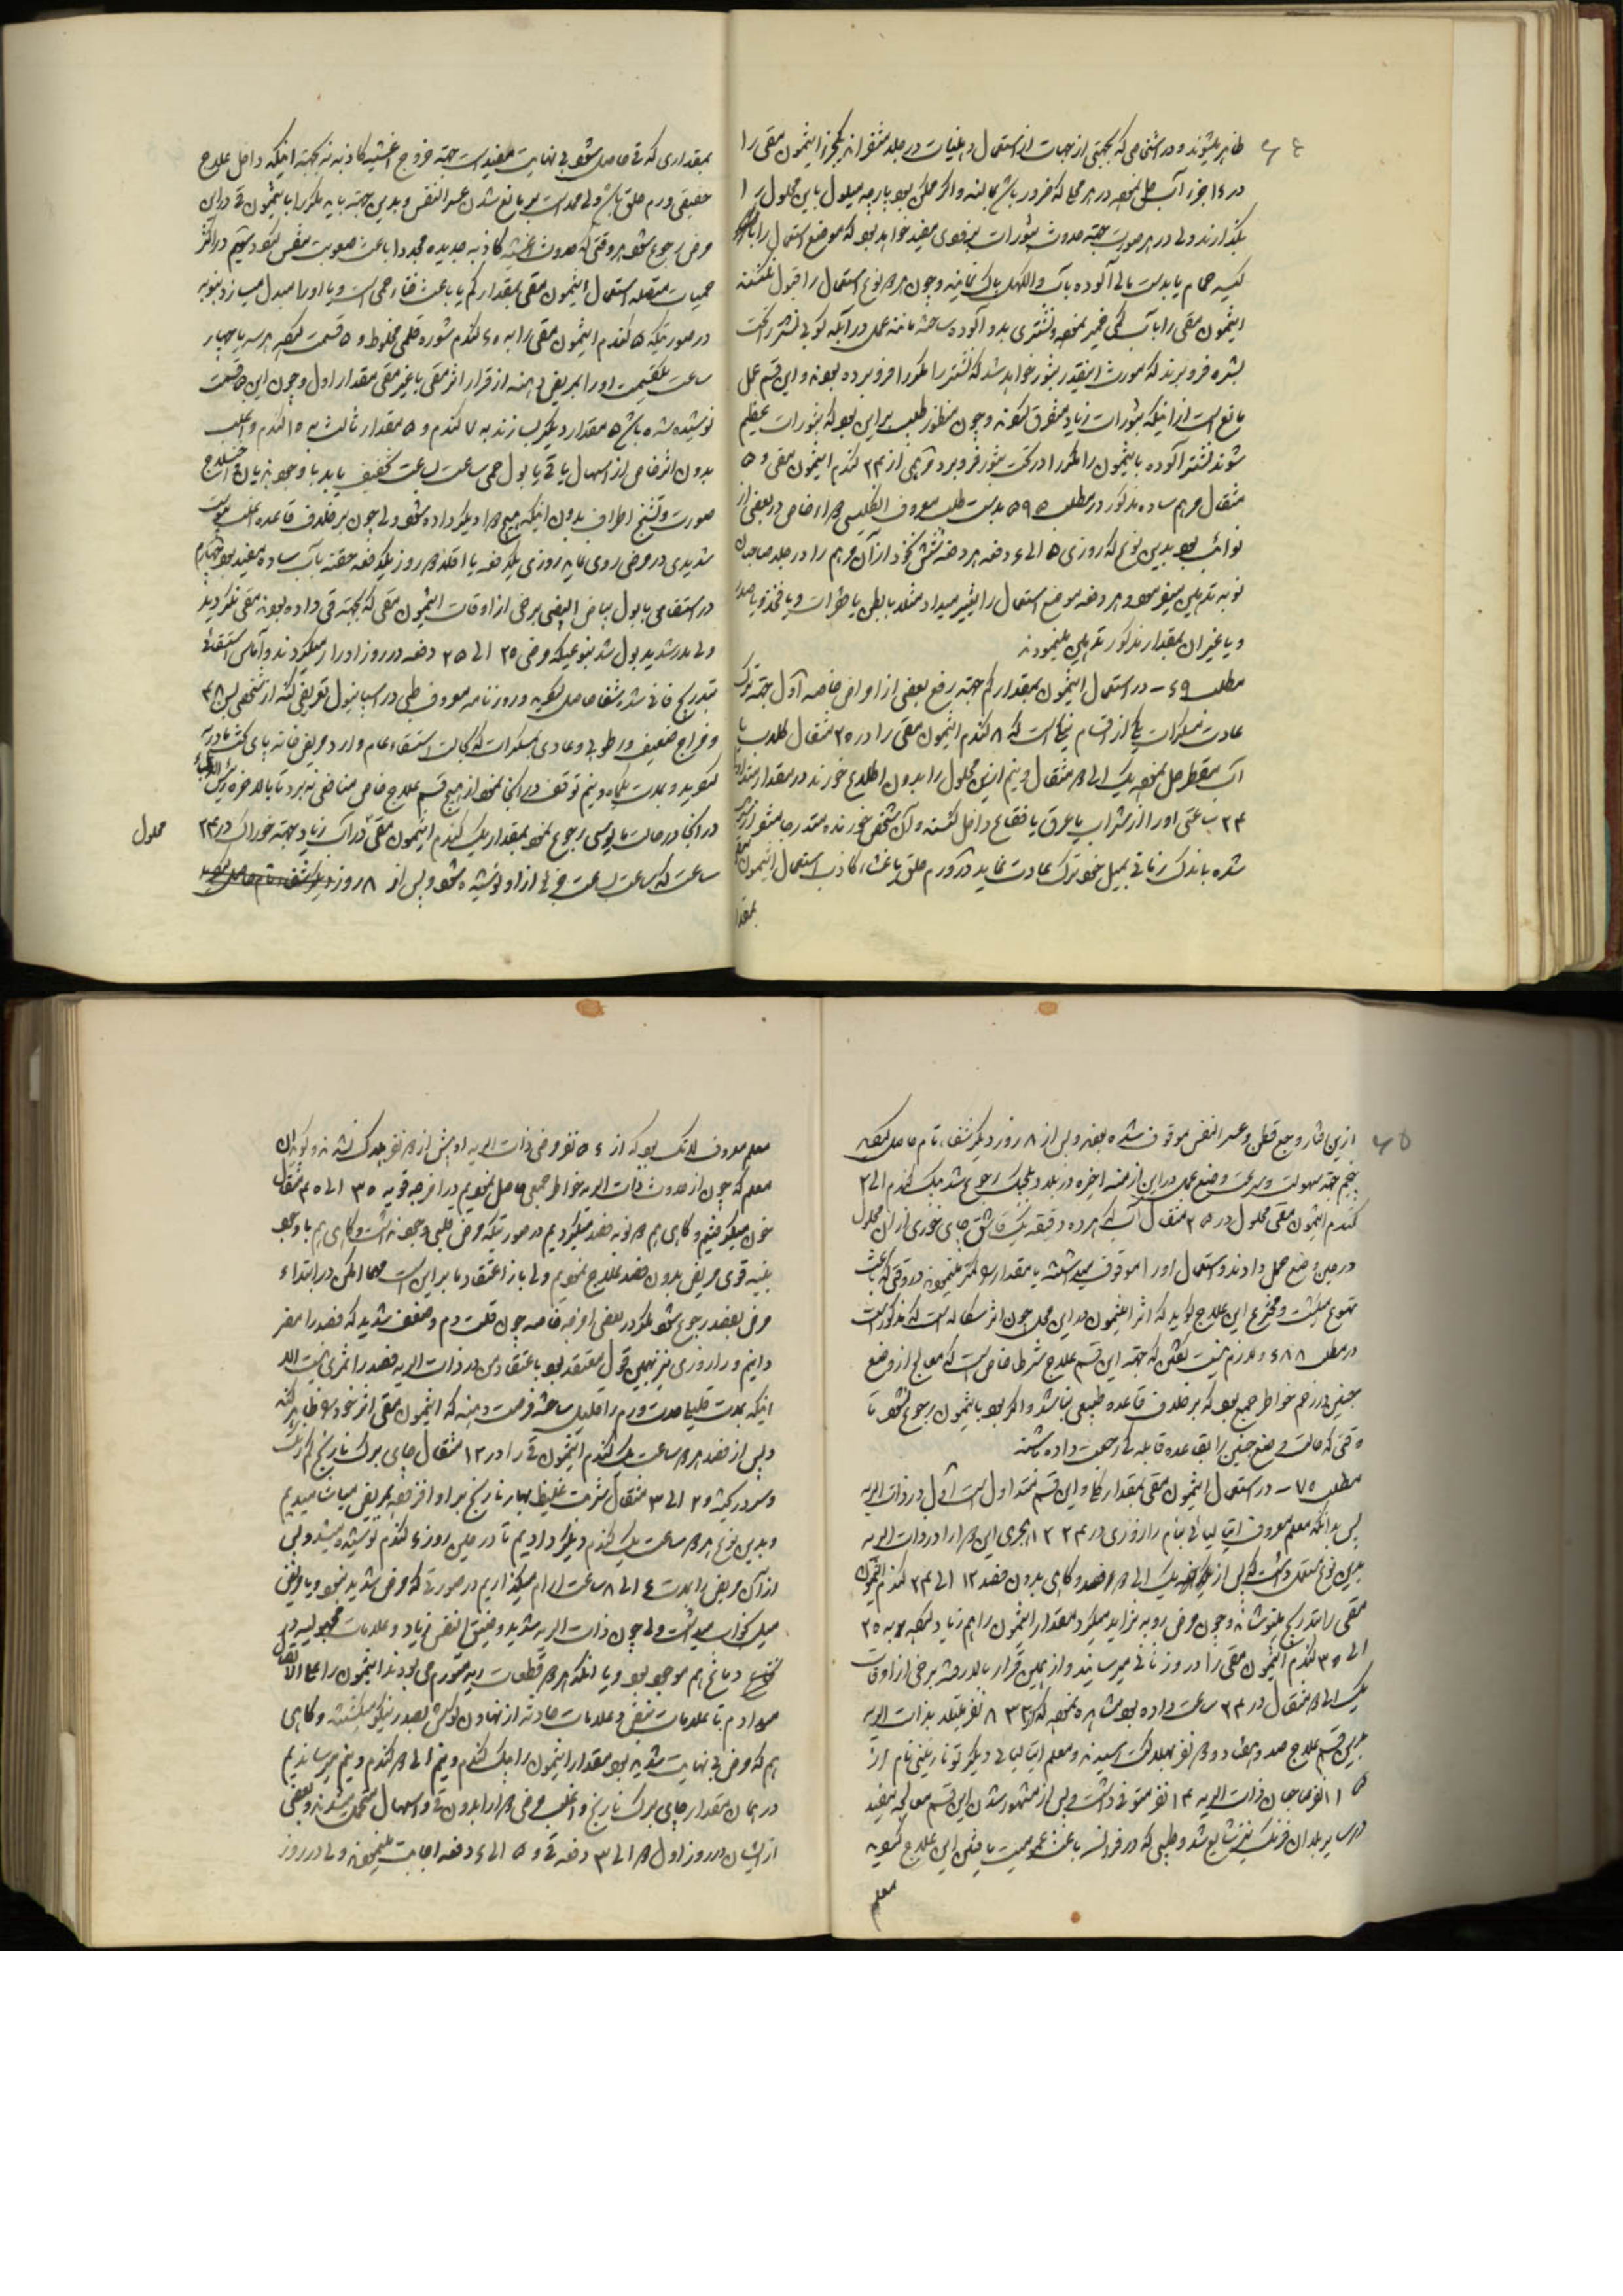 ظاهر میشوند و در اشخاصی که بجهتی از جهات از استعمال دهنیات در جلد متنفرانه یکجزء انتیمون مقی را
در ۱۶ جزء آب حل نموده در هر محل که ضرور باشد بمالند و اگر ممکن بود پارچه مبلول باین محلول را
بگذارند ولی در هر صورت جهة حدوث بثورات نیز قوی مفید خواهد بود که موضع استعمال را
کیسه حمام یا بدست مالی آلوده بآب و الکهل پاک نمایند و چون هر دو نوع استعمال را قبول نکنند
انتیمون مقی را با آب کمی خمیر نموده و نشتری بدو آلوده ساخته مانند عمل در آبله کوبی نشتر را تحت
بشره فرو برند که بمورث اینقدر بثور خواهد شد که نشتر را مکررا فرو برده بودند و این قسم عمل
مانع است از اینکه بثورات زیاد متفرق نکردند و چون منظور طلب بر این بود که بثورات عظیم
شوند نشتر آلوده بانتیمون را مکررا در تحت بثور فرو برد مرهمی از ۲۴ کندم انتیمون مقی و ۵
مثقال مرهم ساده مذکور در مطلب ۵۹۵ بدست طلب معروف انگلیسی دواء خاص در بعضی از
نوائب بود بدین نوع که روزی ۵ الی ۶ دفعه هر دفعه شش نخود از آن مرهم را در جلد صاحبان
نوبه تدهین مینمود و هر دفعه موضع استعمال را تغییر میداد مثلا بابطن یا ظهرات و یا فخذ و یا صدر
و یا غیر آن بمقدار مذکور تدهین مینمودند
مطلب ۶۹ – در استعمال انتیمون بمقدار کم جهة رفع بعضی از امراض خاصه اول جهة ترک
عادت مسکرات یکی از اقسام نیک است که ۸ کندم انتیمون مقی را در ۲۵ مثقال کلاب یا
آب مقطر حل نموده یک الی ۲ مثقال و نیم از این محلول را بدون اطلاع خورنده در مقدار معتاد
۲۴ ساعتی او را از شراب یا عرق یا فقاع داخل کنند و آن شخص خورنده متدرجا متنفر از
شده باندک زمانی بمیل خود ترک عادت نماید دوم در ورم حلق با غشاء کاذب استعمال انتیمون
بمقدا
بمقداری که قی حاصل شود بی نهایت مفید است جهة خروج اغشیه کاذبه نه بجهة اینکه داخل علاج
حقیقی ورم حلق باشد ولی ممد است بر مانع شدن عسر النفس و بدین جهة باید مکررا بانتیمون قی در این
مرض رجوع شود هر وقتی که حدوث اغشیه کاذبه جدیده مجددا باعث صعوبت تنفس نکردد سیم در اکثر
حمیات متصله استعمال انتیمون مقی بمقدار کم یا باعث فناء حمی است و یا او را مبدل میسازد بنوبه
در صورتیکه ۵ کندم انتیمون مقی را به ۶۰ کندم شوره قلمی مخلوط و ۵ قسمت نموده هر سه یا چهار
ساعت یکقسمت او را بمریض دهند از قرار اثر مقی یا غیر مقی مقدار اول و چون این ۵ قسمت
نوشیده شده باشد ۵ مقدار دیکر بسازند به ۷ کندم و ۵ مقدار ثالث به ۱۵ کندم و اغلب
بدون اثر خاص از اسهال یا قی یا بول حمی ساعت بساعت تخفیف یابد با وجود هذیان و اختلاج
صورت و تشنج اطراف بدون اینکه هیچ دواء دیکر داده شود ولی چون بر خلاف قاعده اغلب یبوست
شدیدی در مرض روی نماید روزی یکدفعه یا اقلا دو روز یکدفعه حقنه بآب ساده مفید بود چهارم
در استسقاء با بول بیاض البیضی برخی از اوقات انتیمون مقی که بجهة قی داده بودند مقی نکردید
ولی مدر شدید بول شد بنوعیکه مرضی ۲۵ الی ۳۵ دفعه در روز ادرار میکردند و آماس استسقائی
بتدریج فانی شده شفا حاصل نکردید و روزنامه معروف طبی در اسپانیول تعریفی کند از شخصی بسن ۴۸
و مزاج ضعیف و رطوبی و عادی بمسکرات که بحالت استسقاء عام وارد مریض خانه پای تخت مادرید
نکردید و مدت یکماه و نیم توقف در آنجا نمود از هیچ قسم علاج خاص منافعی نبرد تا بالاخره رئیس الاطباء
در آنجا در حالت مایوسی رجوع نمود بمقدار یک کندم انتیمون مقی در آب زیاد بجهة خوراک در ۲۴
محلول
ساعت که ساعت بساعت جزئی از او نوشیده شود و پس از ۸ روز
ازین آثار وجع قطن و عسر النفس موقوف شده بودند و پس از ۸ روز دیکر شفاء تام حاصل نمود
پنجم جهة سهولت و سرعت وضع حمل در این ازمنه اخیره در بلاد بلجیک رجوع شد بیک کندم الی ۲
کندم انتیمون مقی محلول در ۲۵ مثقال آب که هر ده دقیقه یک قاشق چای خوری از آن محلول
در حین وضع حمل دادند و استعمال او را موقوف میداشتند یا مقدار او را کمتر مینمودند در وقتی که باعث
تهوع میکشت و مخترع این علاج کوید که اثر انتیمون در این محل چون اثر سکاله است که مذکور است
در مطلب ۶۸۸ و لازم نیست گفتن که جهة این قسم علاج شرط خاص است که معالج از وضع
جنین در رحم خواطر جمع بود که بر خلاف قاعده طبیعی نباشد و اگر بود بانتیمون رجوع نشود تا
وقتی که حالت وضع جنین را بقاعده قابله کی رجعت داده باشند
مطلب ۷۰ – در استعمال انتیمون مقی بمقدار کلی و این قسم متداول است اول در ذات الریه
پس بدانکه معلم معروف ایتالیائی بنام رازوری در ۱۲۲۴ هجری این دوا را در ذات الریه
بدین نوع مستعمل داشت که پس از یک الی ۲ فصد و کاهی بدون فصد ۱۲ الی ۲۴ کندم انتیمون
مقی را بتدریج مینوشاند و چون مرض رو به تزاید میکرد مقدار انتیمون را هم زیاد نموده به ۲۵
الی ۳۵ کندم انتیمون مقی را در روز ثانی میرسانید و از همین قرار بالا رفته برخی از اوقات
یک الی ۲ مثقال در ۲۴ ساعت داده بود مشاهده نمود که از ۸۳۲ نفر مبتلا بذات الریه
بدین قسم علاج صد و هفتاد و دو نفر بهلاکت رسیدند و معلم ایتالیائی دیکر تونارینی نام از
۱۱۵ نفر صاحبان ذات الریه ۱۴ نفر متوفی داشت و پس از مشهور شدن این قسم معالجه مفید
در سایر بلدان فرنک نیز شایع شد و طبی که در فرانسه باعث عمومیت یافتن این علاج کردید
معلم
معلم معروف لانک بود که از ۵۶ نفر مرضی ذات الریه او بیش از دو نفر هلاک نشدند و کوید آن
معلم که چون از حدوث ذات الریه خواطر جمعی حاصل نمودیم در امزجه قویه ۳۵ الی ۴۵ مثقال
خون میکرفتیم و کاهی هم دو نوبه فصد میکردیم در صورتیکه مرض قلبی وجود نداشت و کاهی هم با وجود
بنیه قوی مریض بدون فصد علاج نمودیم ولی باز اعتقاد ما بر این است مهما امکن در ابتداء
مرض بفصد رجوع شود مکر در بعضی امزجه خاصه چون قلت دم و ضعف شدید که فصد را مضر
دانیم و رازوری نیز بهمین قول معتقد بود باعتقاد من در ذات الریه فصد را ثمری نیست الا
اینکه بمدت قلیل حدت ورم را قلیل ساخته فرصت دهند که انتیمون مقی اثر خود را ظاهر کند
و پس از فصد هر دو ساعت یک کندم انتیمون قی را در ۱۲ مثقال چای برک نارنج کم رنک
و سرد ریخته و ۲ الی ۳ مثقال شربت غلیظ بهار نارنج بر او افزوده بمریض میآشامیدیم
و بدین نوع هر دو ساعت یک کندم دیکر دادیم تا در همین روز ۶ کندم نوشیده میشد و پس
از آن مریض را بمدت ۶ الی ۸ ساعت آرام میکذاریم در صورتی که مرض شدید نبود و یا مریض
میل بخواب میداشت ولی چون ذات الریه شدید و ضیق النفس زیاد و علامات مجهولیه در
دماغ هم موجود بود و یا آنکه هر دو قطعات ریه متورم می بودند انتیمون را علی الاتصال
میدادم تا علامات تنفس و علامات حادثه از نهادن گوش بصدر نیکو میکشتند و کاهی
هم که مرض بی نهایت شدید بود مقدار انتیمون را بیک کندم و نیم الی دو کندم و نیم میرساندیم
در همان مقدار چای برک نارنج و اغلب مرضی دوا را بدون قی و اسهال متحمل میشدند و بعضی
از ایشان در روز اول ۲ الی ۳ دفعه قی و ۵ الی ۶ دفعه اجابت مینمودند ولی در روز